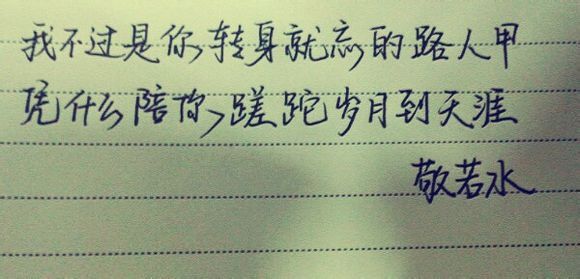 我不过是你转身就忘的路人甲
凭什么陪你蹉跎岁月到天涯
敬若水